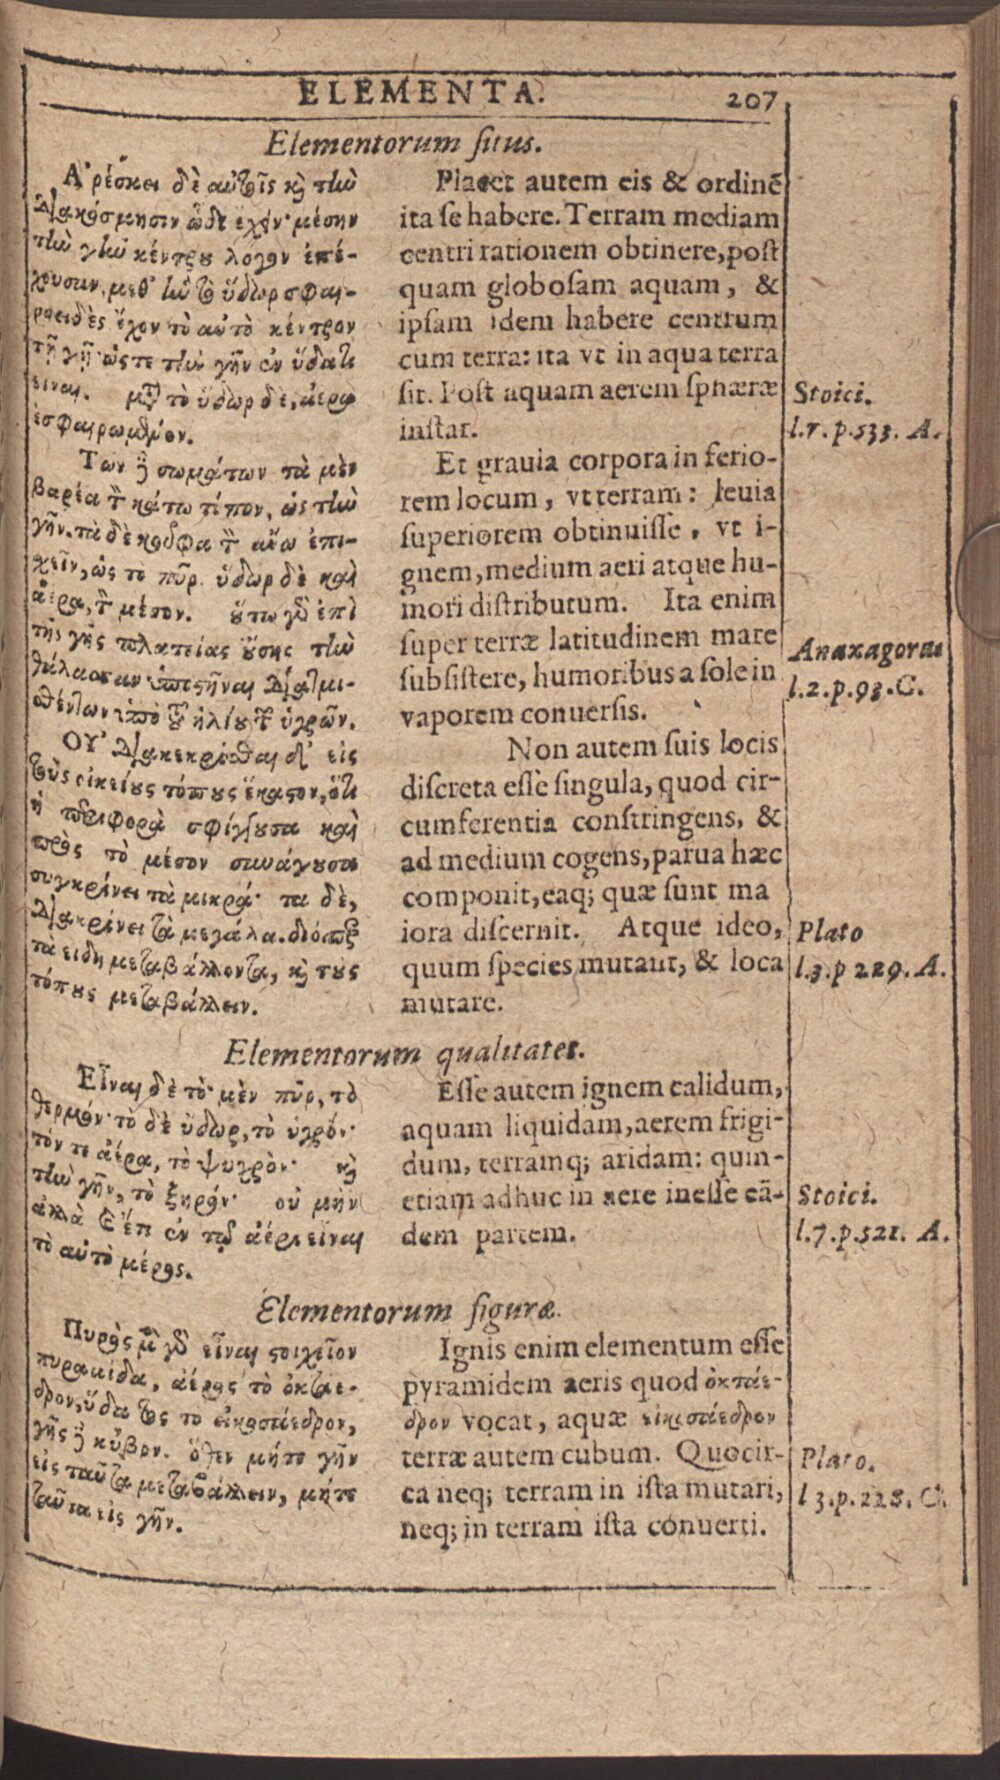 ELEMENTA. 207
Elementorum situs.
Ἀρέσκει δὲ αὐτοῖς κὴ τὴν
διακόσμησιν ὧδε ἔχειν· μέσην
τὴν γῆν κέντρου λόγον ἐπέ-
χουσαν, μεθ᾽ ἣν τὸ ὕδωρ σφαι-
ροειδὲς ἔχον τὸ αὐτὸ κέντρον
τῇ γῇ· ὥστε τὴν γῆν ἐν ὕδατι
εἶναι. μετὰ τὸ ὕδωρ δὲ, ἀέρα
ἐσφαιρωμένον.
Των δὲ σωμάτων τὰ μὲν
βαρέα τὸν κάτω τόπον, ὡς τὴν
γῆν. τὰ δὲ κοῦφα τὸν ἄνω ἐπι-
χεῖν, ὡς τὸ πῦρ. ὕδωρ δὲ καὶ
ἀέρα, τὸν μέσον. οὕτω γὰρ ἐπὶ
τῆς γῆς πλατείας οὔσης τὴν
θάλασσαν ὑποστῆναι διατμι-
σθέντων ὑπὸ τοῦ ἡλίου τῶν ὑγρῶν.
Οὐ διακεκρίσθαι δ᾽ εἰς
τοὺς οἰκείους τόπους ἕκαστον, ὅτι
ἡ περιφορὰ σφίγγουσα καὶ
πρὸς τὸ μέσον συνάγουσα
συγκρίνει τὰ μικρά· τα δὲ,
διακρίνει τὰ μεγάλα. διόπερ
τὰ ειδη μεταβάλλοντα, κὴ τους
τόπους μεταβάλλειν.
Placet autem eis & ordinē
ita se habere. Terram mediam
centri rationem obtinere, post
quam globosam aquam, &
ipsam idem habere centrum
cum terra: ita vt in aqua terra
sit. Post aquam aerem sphæræ
instar.
Et grauia corpora in ferio-
rem locum, vt terram: leuia
superiorem obtinuisse, vt i-
gnem, medium aeri atque hu-
mori distributum. Ita enim
super terræ latitudinem mare
subsistere, humoribus a sole in
vaporem conuersis.
Non autem suis locis
discreta esse singula, quod cir-
cumferentia constringens, &
ad medium cogens, parua hæc
componit, eaq; quæ sunt ma
iora discernit. Atque ideo,
quum species mutant, & loca
mutare.
Stoici.
l.7.p.533. A.
Anaxagorae
l.2.p.93.C.
Plato
l.3.p 229. A.
Elementorum qualitates.
Εἶναι δὲ τὸ μὲν πῦρ, τὸ
θερμόν· τὸ δὲ ὕδωρ, τὸ υγρόν·
τόν τε ἀέρα, τὸ ψυχρὸν· κὴ
τὴν γῆν, τὸ ξηρόν· οὐ μὴν
ἀλλὰ καὶ ἔτι ἐν τῷ ἀέρι εἶναι
τὸ αὐτὸ μέρος.
Esse autem ignem calidum,
aquam liquidam, aerem frigi-
dum, terramq; aridam: quin-
etiam adhuc in aere inesse eā-
dem partem.
Stoici.
l.7.p.521. A.
Elementorum figuræ.
Πυρὸς μὲν γὰρ εἶναι στοιχεῖον
πυραμίδα, ἀέρος τὸ ὀκταε-
δρον, ὕδατος το εἰκοσπάεδρον,
γῆς δὲ κύβον. ὅθεν μήτε γῆν
εἰς ταῦτα μεταβάλλειν, μήτε
ταῦτα εἰς γῆν.
Ignis enim elementum esse
pyramidem aeris quod ὀκτάε-
δρον vocat, aquæ εἰκοσπάεδρον
terræ autem cubum. Quocir-
ca neq; terram in ista mutari,
neq; in terram ista conuerti.
Plato.
l 3.p.228. C.